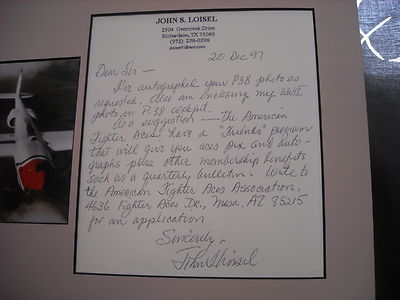 JOHN S. LOISEL
2504 Overcreek Drive
Richardson, TX 75080
(972) 238-0398
20 Dec 97
Dear Sir —
I've autographed your P38 photo as
requested. Also am enclosing my WWII
photo in P-38 cockpit.
As a suggestion — the American
Fighter Aces have a "Friends" program
that will give you aces pix and auto-
graphs plus other membership benefits
such as a quarterly bulletin. Write to
the American Fighter Aces Association,
4636 Fighter Aces Dr., Mesa, AZ 85215
for an application
Sincerely,
John S Loisel